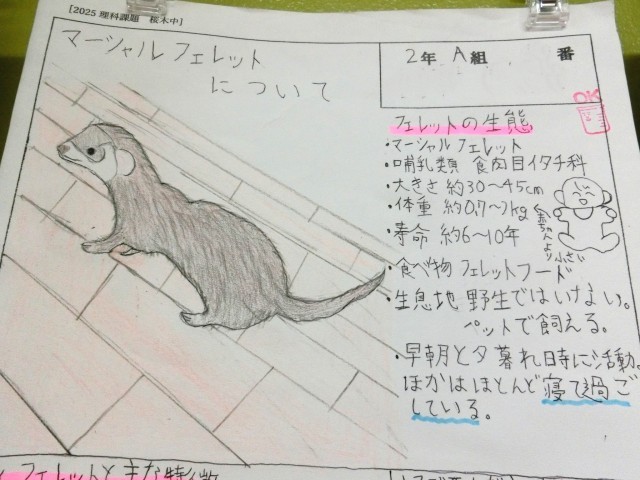 [2025 理科課題 桜木中]
マーシャルフェレット
について
2年 A組 番
OK
フェレットの生態
・マーシャルフェレット
・哺乳類 食肉目イタチ科
・大きさ 約30〜45cm
・体重 約0.7〜2kg
赤ちゃんより小さい
・寿命 約6〜10年
・食べ物 フェレットフード
・生息地 野生ではいけない。
ペットで飼える。
・早朝と夕暮れ時に活動。
ほかはほとんど寝て過ご
している。
フェレットと主な特徴